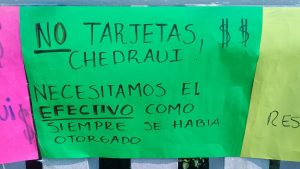 NO TARJETAS, $$
CHEDRAUI!
NECESITAMOS EL
EFECTIVO COMO
SIEMPRE SE HABIA
OTORGADO
UI
$
RES